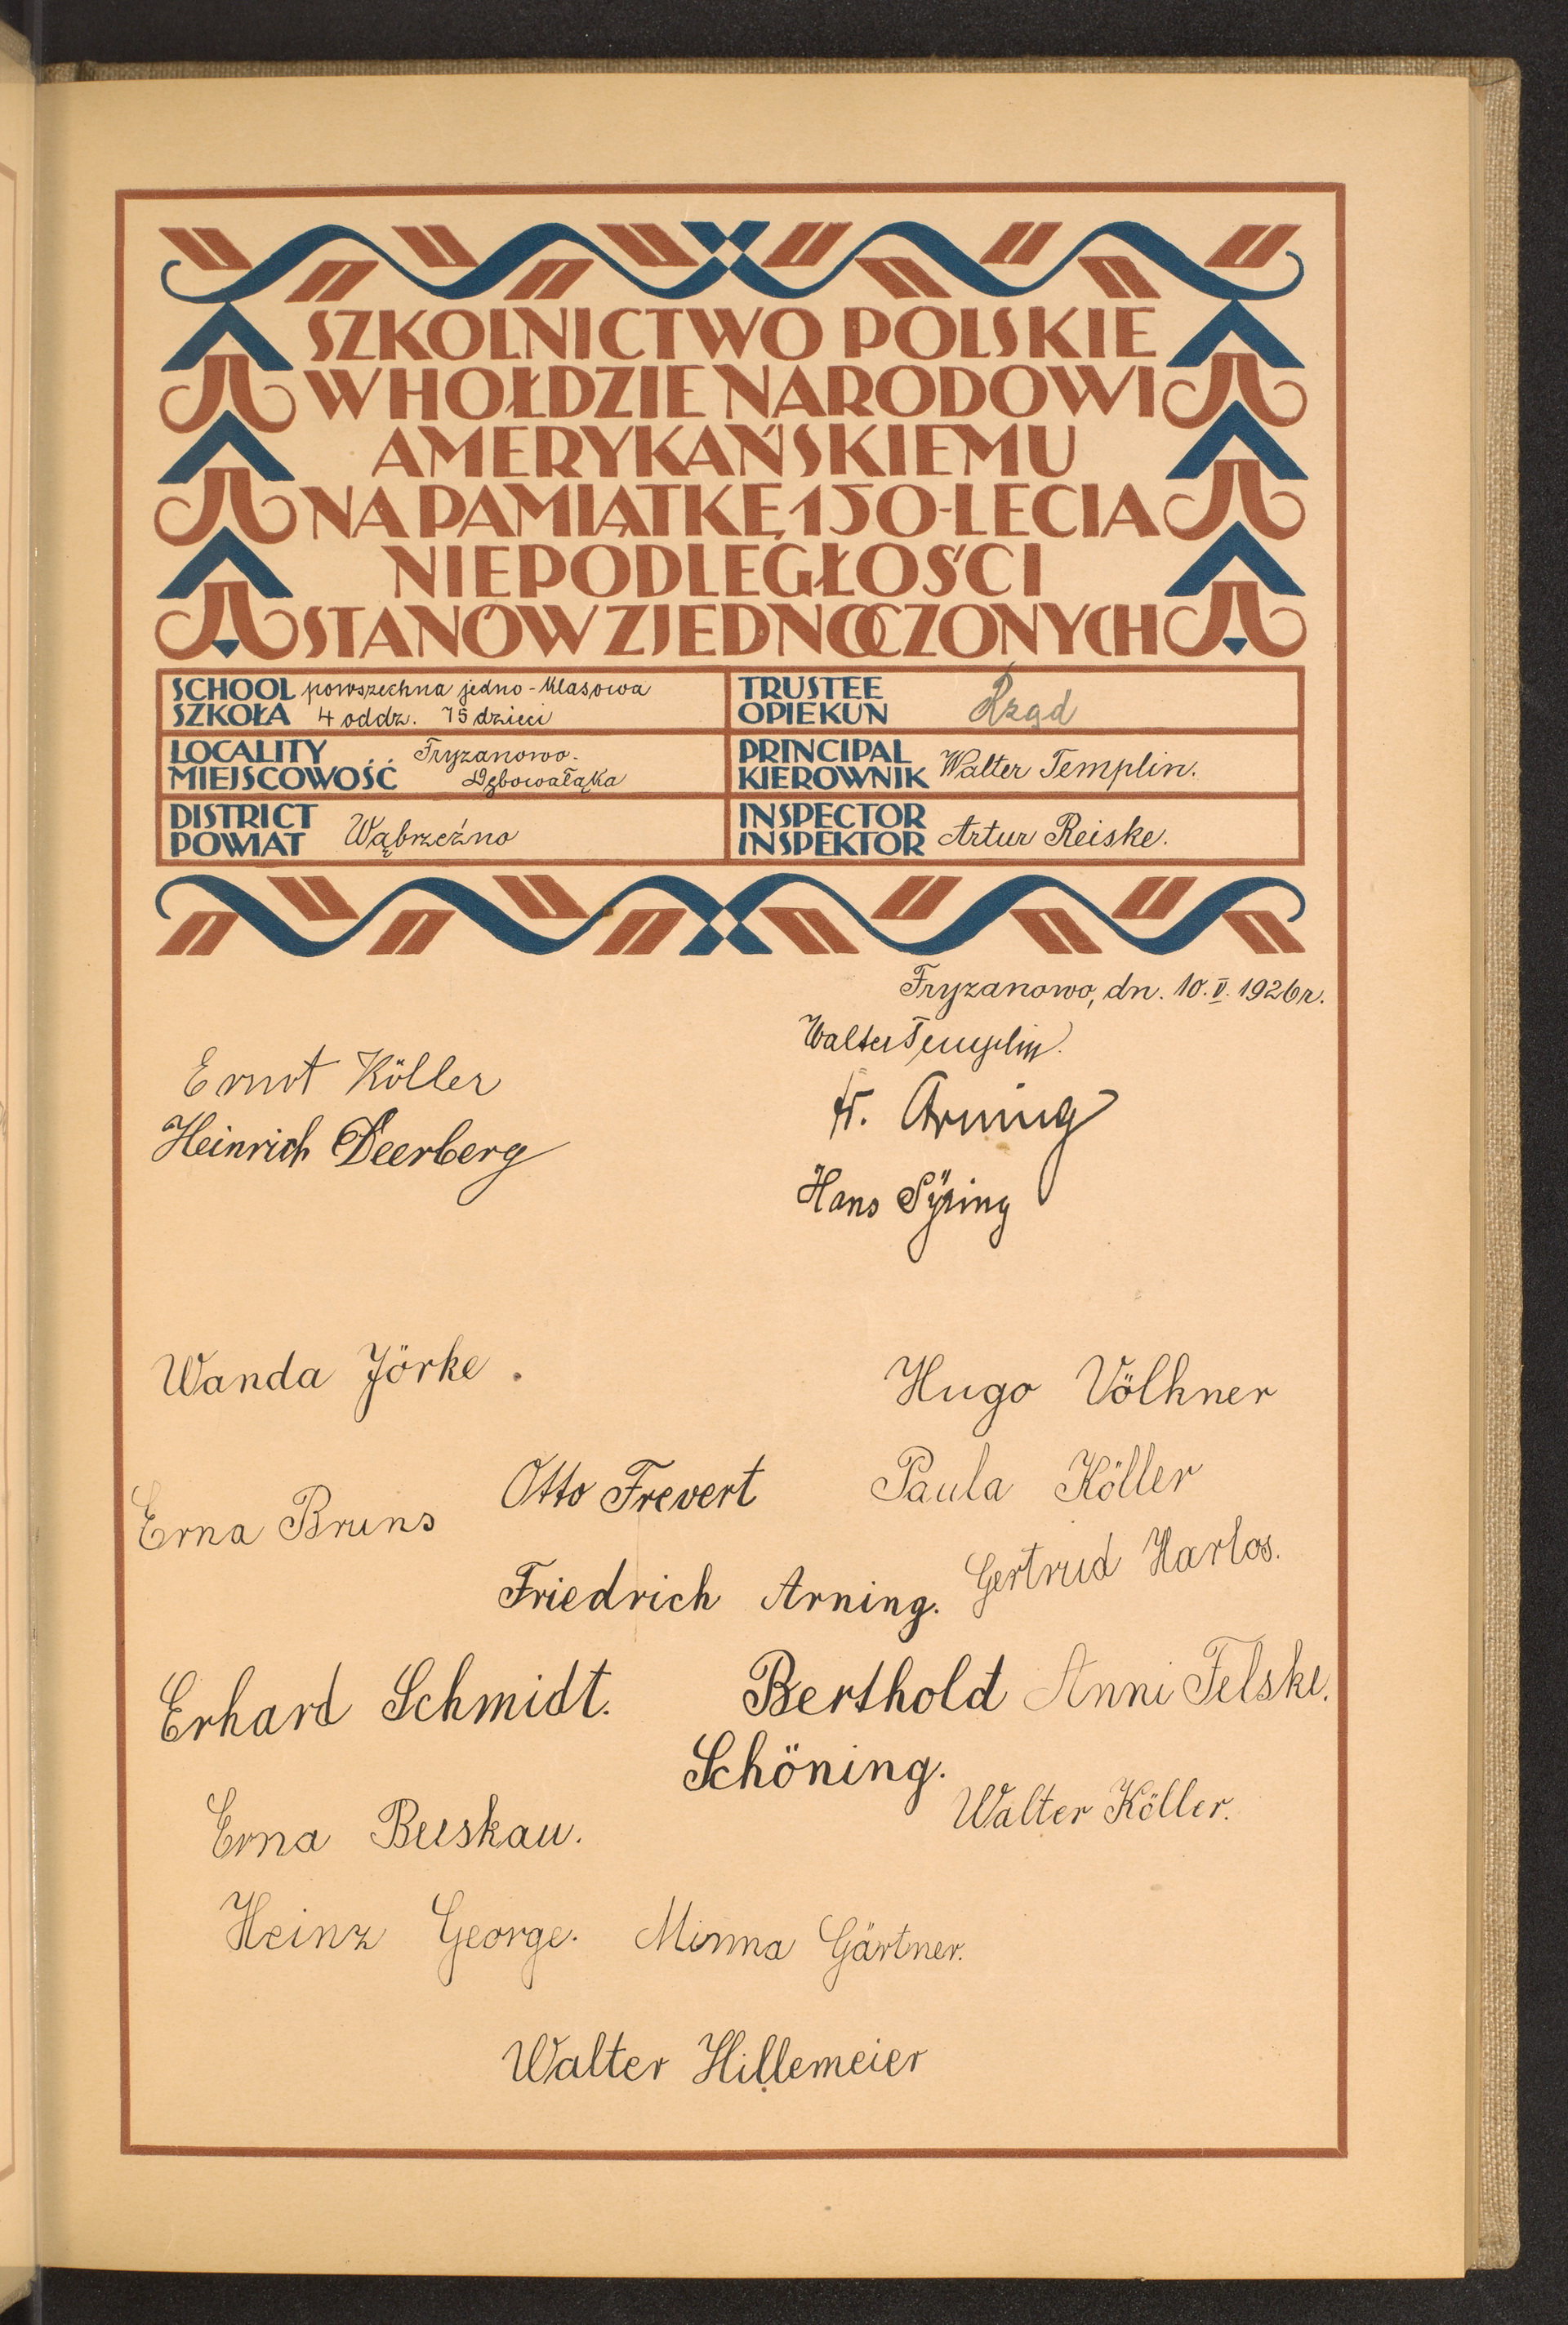 SZKOLNICTWO POLSKIE
W HOŁDZIE NARODOWI
AMERYKAŃSKIEMU
NA PAMIĄTKĘ 150-LECIA
NIEPODLEGŁOŚCI
STANÓW ZJEDNOCZONYCH
SCHOOL powszechna jedno-klasowa
SZKOŁA 4 oddz. 75 dzieci
TRUSTEE
OPIEKUN Rząd
LOCALITY Fryzanowo.
MIEJSCOWOŚĆ Dębowałąka
PRINCIPAL
KIEROWNIK Walter Templin.
DISTRICT
POWIAT Wąbrzeźno
INSPECTOR
INSPEKTOR Artur Reiske.
Fryzanowo, dn. 10. V. 1926 r.
Walter Templin.
Ernst Köller
H. Arning
Heinrich Deerberg
Hans Sÿring
Wanda Jörke.
Hugo Völkner
Otto Frevert
Paula Köller
Erna Bruns
Friedrich Arning.
Gertrud Harlos.
Erhard Schmidt.
Berthold
Schöning.
Anni Felske.
Walter Köller.
Erna Buskau.
Heinz George.
Minna Gärtner.
Walter Hillemeier